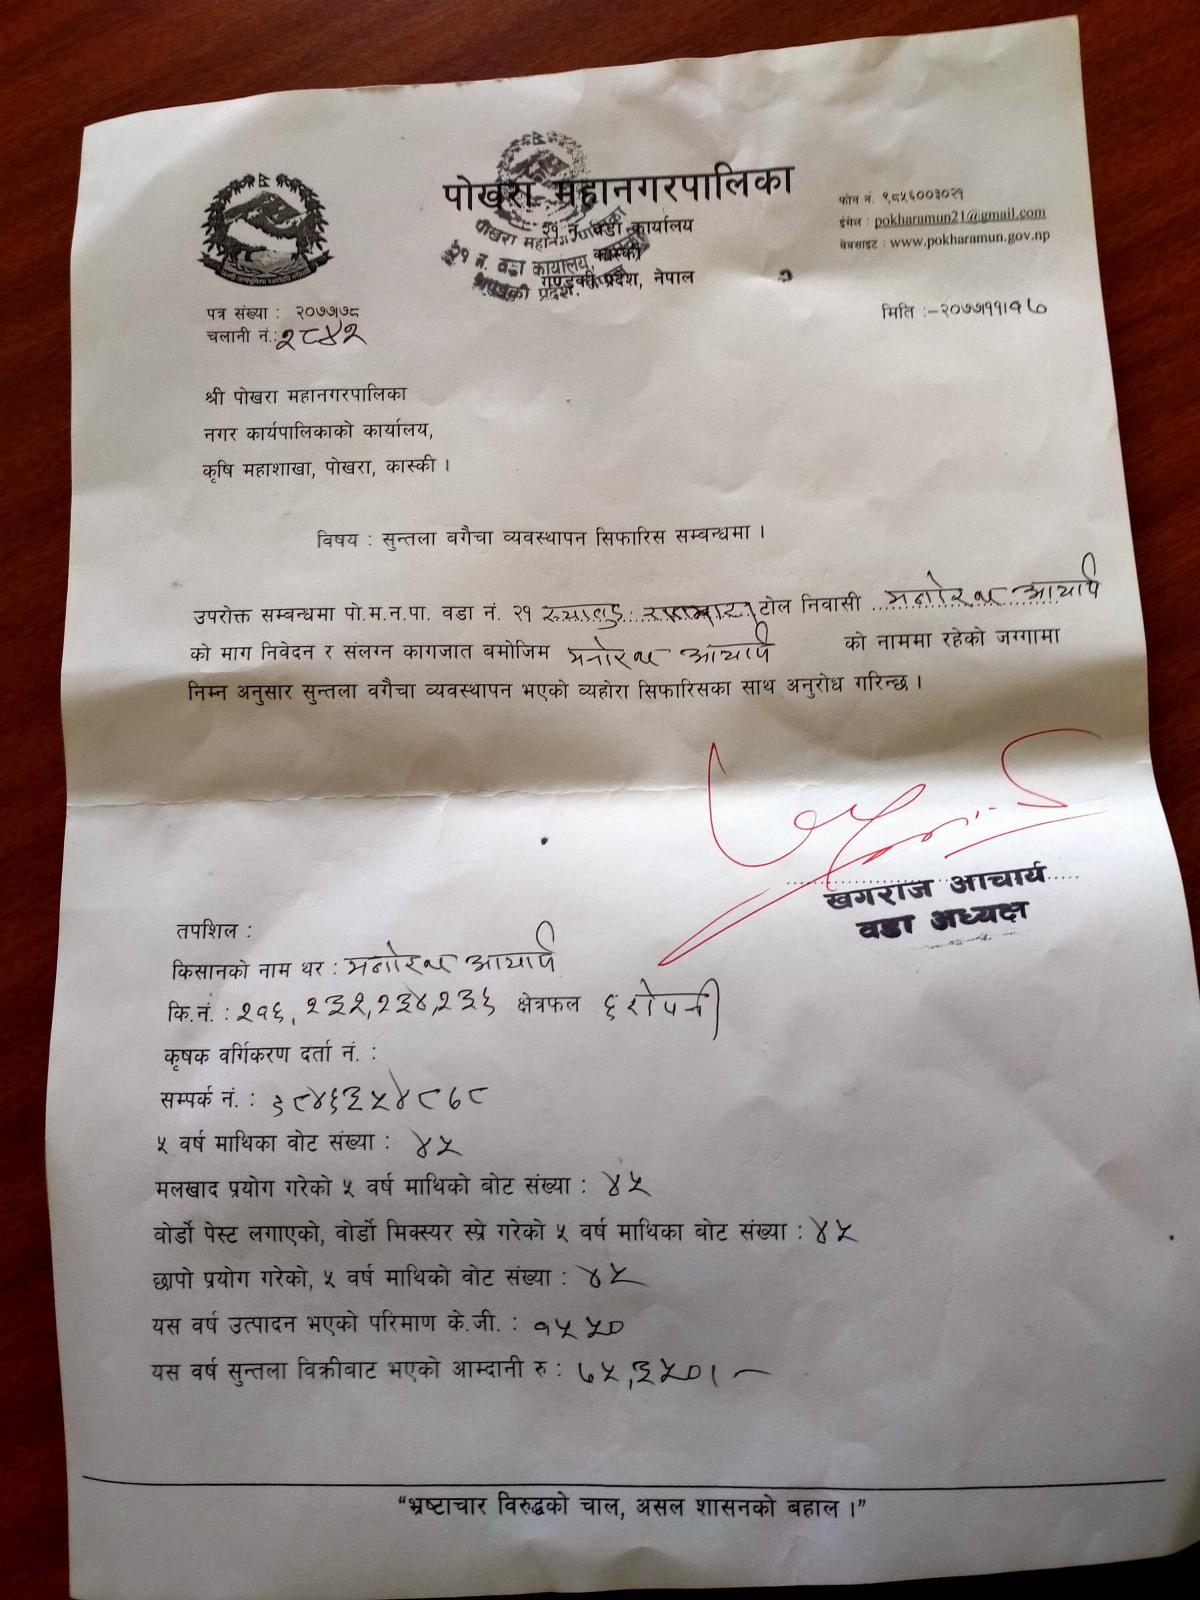 पोखरा महानगरपालिका
२१ न. वडा कार्यालय
कास्की
गण्डकी प्रदेश, नेपाल
फोन नं. ९८५६००३०२१
इमेल : pokharamun21@gmail.com
वेबसाइट : www.pokharamun.gov.np
पत्र संख्या : २०७७।७८
चलानी नं.: २८४२
मिति :-२०७७।११।१७
श्री पोखरा महानगरपालिका
नगर कार्यपालिकाको कार्यालय,
कृषि महाशाखा, पोखरा, कास्की ।
विषय : सुन्तला बगैचा व्यवस्थापन सिफारिस सम्बन्धमा ।
उपरोक्त सम्बन्धमा पो.म.न.पा. वडा नं. २१ टोल निवासी मनोरथ आचार्य
को माग निवेदन र संलग्न कागजात बमोजिम मनोरथ आचार्य को नाममा रहेको जग्गामा
निम्न अनुसार सुन्तला वगैचा व्यवस्थापन भएको व्यहोरा सिफारिसका साथ अनुरोध गरिन्छ ।
खगराज आचार्य
वडा अध्यक्ष
तपशिल :
किसानको नाम थर : मनोरथ आचार्य
कि.नं. : २१६, २३२, २३४, २३६ क्षेत्रफल ६ रोपनी
कृषक वर्गिकरण दर्ता नं. :
सम्पर्क नं. : ९८४६३५४८७८
५ वर्ष माथिका वोट संख्या : ४५
मलखाद प्रयोग गरेको ५ वर्ष माथिको वोट संख्या : ४५
वोर्डो पेस्ट लगाएको, वोर्डो मिक्स्चर स्प्रे गरेको ५ वर्ष माथिका बोट संख्या : ४५
छापो प्रयोग गरेको, ५ वर्ष माथिको वोट संख्या : ४५
यस वर्ष उत्पादन भएको परिमाण के.जी. : १५५०
यस वर्ष सुन्तला विक्रीबाट भएको आम्दानी रु : ७५,३५०।-
“भ्रष्टाचार विरुद्धको चाल, असल शासनको बहाल ।”